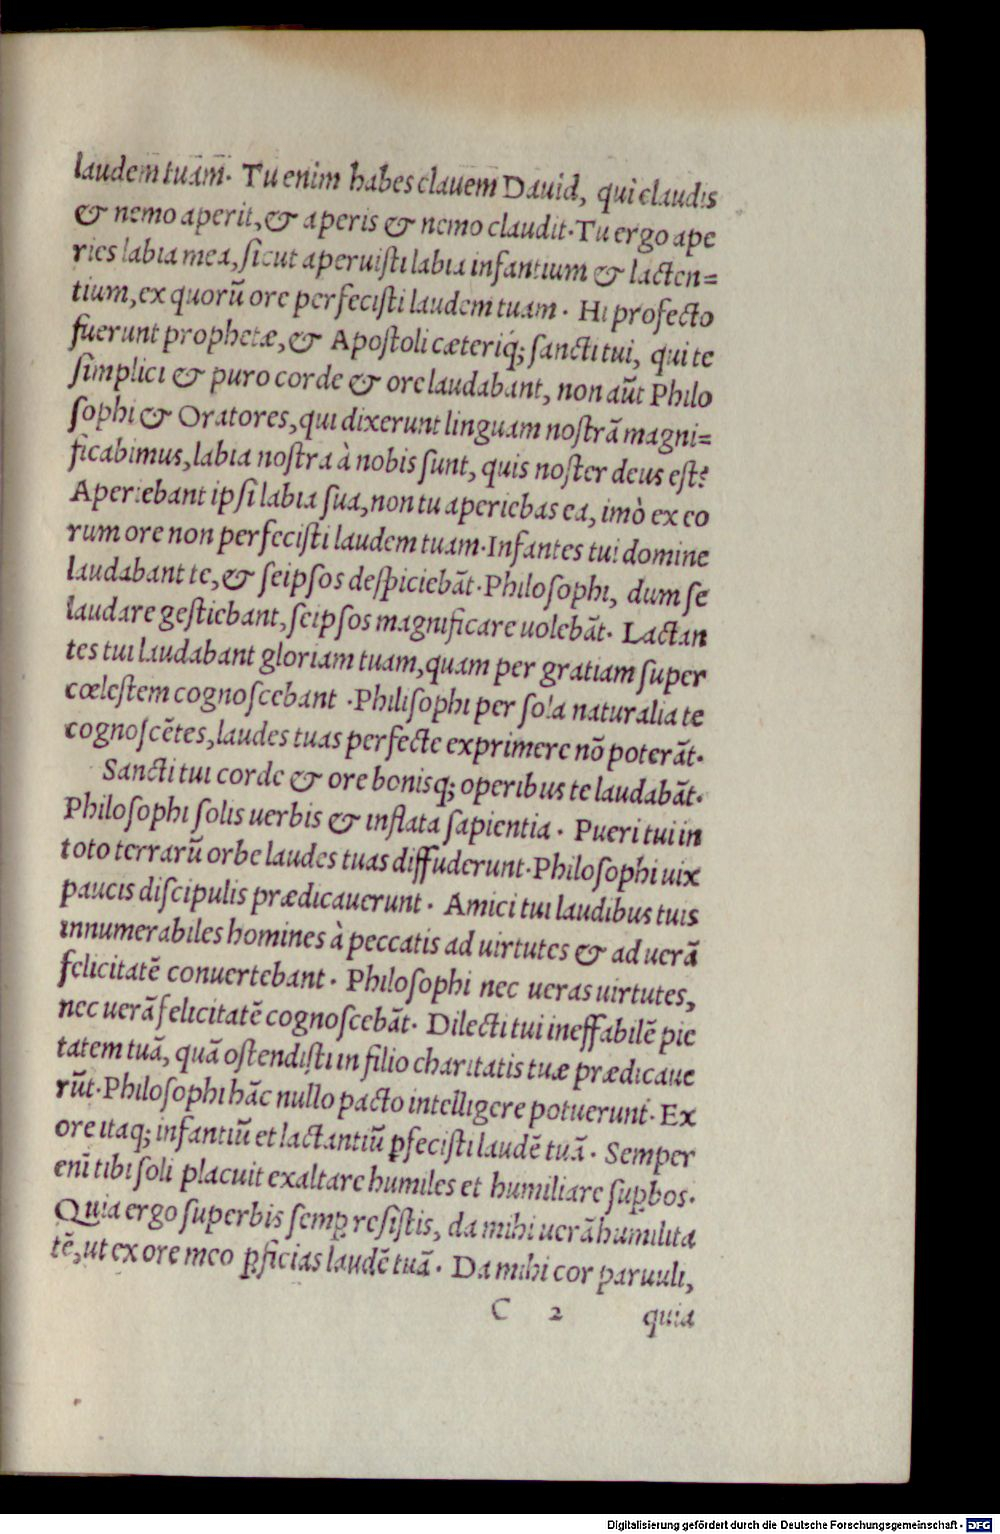 laudem tuam. Tu enim habes clauem Dauid, qui claudis
& nemo aperit, & aperis & nemo claudit. Tu ergo ape
ries labia mea, sicut aperuisti labia infantium & lacten=
tium, ex quorū ore perfecisti laudem tuam. Hi profecto
fuerunt prophetæ, & Apostoli cæteriq; sancti tui, qui te
simplici & puro corde & ore laudabant, non aūt Philo
sophi & Oratores, qui dixerunt linguam nostrā magni=
ficabimus, labia nostra à nobis sunt, quis noster deus est?
Aperiebant ipsi labia sua, non tu aperiebas ea, imò ex eo
rum ore non perfecisti laudem tuam. Infantes tui domine
laudabant te, & seipsos despiciebāt. Philosophi, dum se
laudare gestiebant, seipsos magnificare uolebāt. Lactan
tes tui laudabant gloriam tuam, quam per gratiam super
cœlestem cognoscebant. Philisophi per sola naturalia te
cognoscētes, laudes tuas perfecte exprimere nō poterāt.
Sancti tui corde & ore bonisq; operibus te laudabāt.
Philosophi solis uerbis & inflata sapientia. Pueri tui in
toto terrarū orbe laudes tuas diffuderunt. Philosophi uix
paucis discipulis prædicauerunt. Amici tui laudibus tuis
innumerabiles homines à peccatis ad uirtutes & ad uerā
felicitatē conuertebant. Philosophi nec ueras uirtutes,
nec uerā felicitatē cognoscebāt. Dilecti tui ineffabilē pie
tatem tuā, quā ostendisti in filio charitatis tuæ prædicaue
rūt. Philosophi hāc nullo pacto intelligere potuerunt. Ex
ore itaq; infantiū et lactantiū ꝑfecisti laudē tuā. Semper
enī tibi soli placuit exaltare humiles et humiliare suꝑbos.
Quia ergo superbis semꝑ resistis, da mihi uerā humilita
tē, ut ex ore meo ꝑficias laudē tuā. Da mihi cor paruuli,
C 2 quia
Digitalisierung gefördert durch die Deutsche Forschungsgemeinschaft - DFG